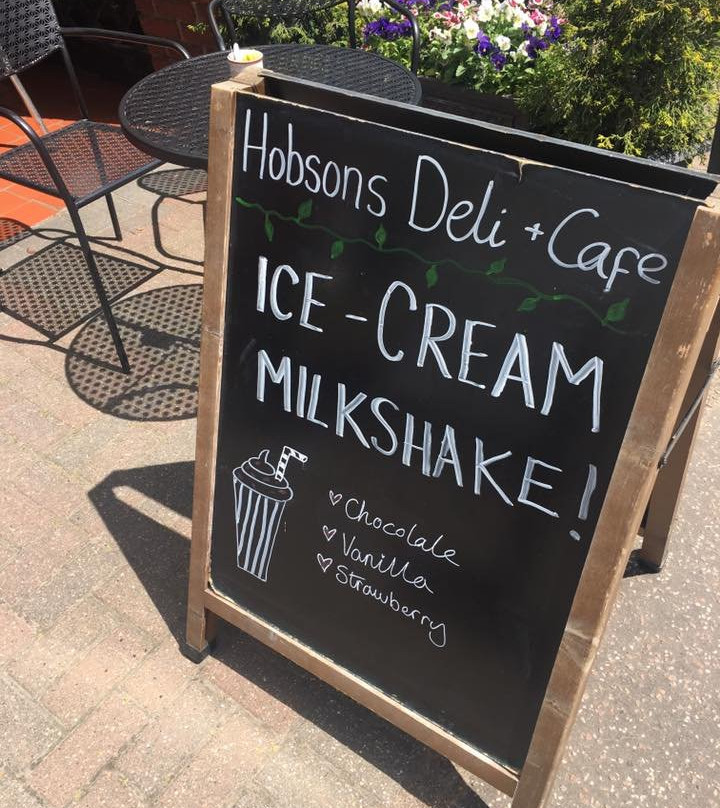 Hobsons Deli + Cafe
ICE-CREAM
MILKSHAKE!
♡ Chocolate
♡ Vanilla
♡ Strawberry